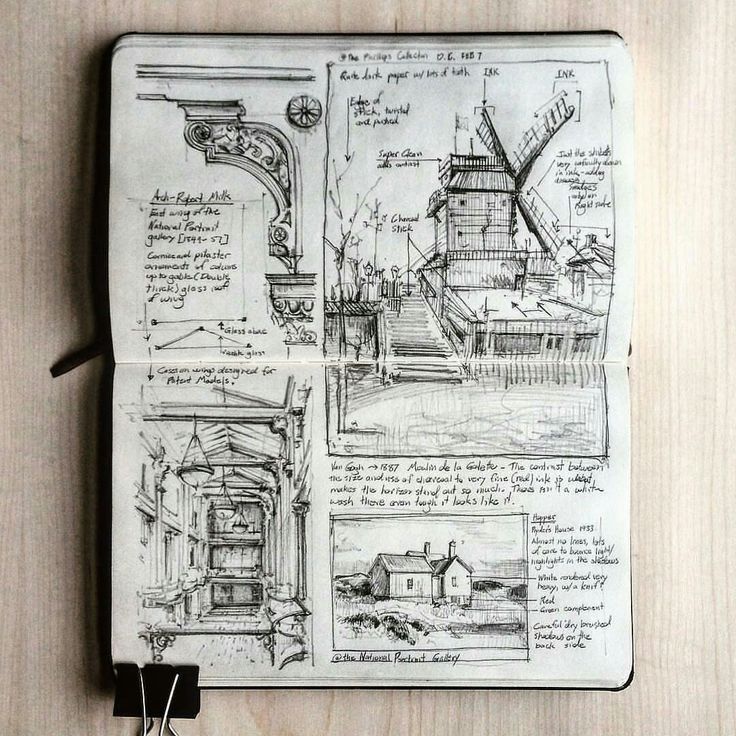 @ The Phillips Collection D.C. FEB 7
Quite dark paper w/ lots of tooth
INK
INK
Edge of
stick, twisted
and pushed
Super Clean
adds contrast
Charcoal
stick
Just the
very carefully drawn
in ink - adding
Right side
Arch - Robert Mills
East wing of the
National Portrait
gallery [1849-57]
Cornice and pilaster
ornaments of column
up to gable (Double
thick) glass roof
of wing
Glass above
glass
Cases on wings designed for
Patent Models.
Van Gogh → 1887 Moulin de la Galette - The contrast between
the size and use of charcoal to very fine (red) ink is what
makes the horizon stand out so much. There isn't a white
wash there even tough it looks like it.
Hopper
Ryder's House 1933
Almost no lines, lots
of care to bounce light/
highlights in the shadows
White rendered very
heavy, w/ a knife?
Red
Green complement
Careful dry brushed
shadows on the
back side
@ the National Portrait Gallery